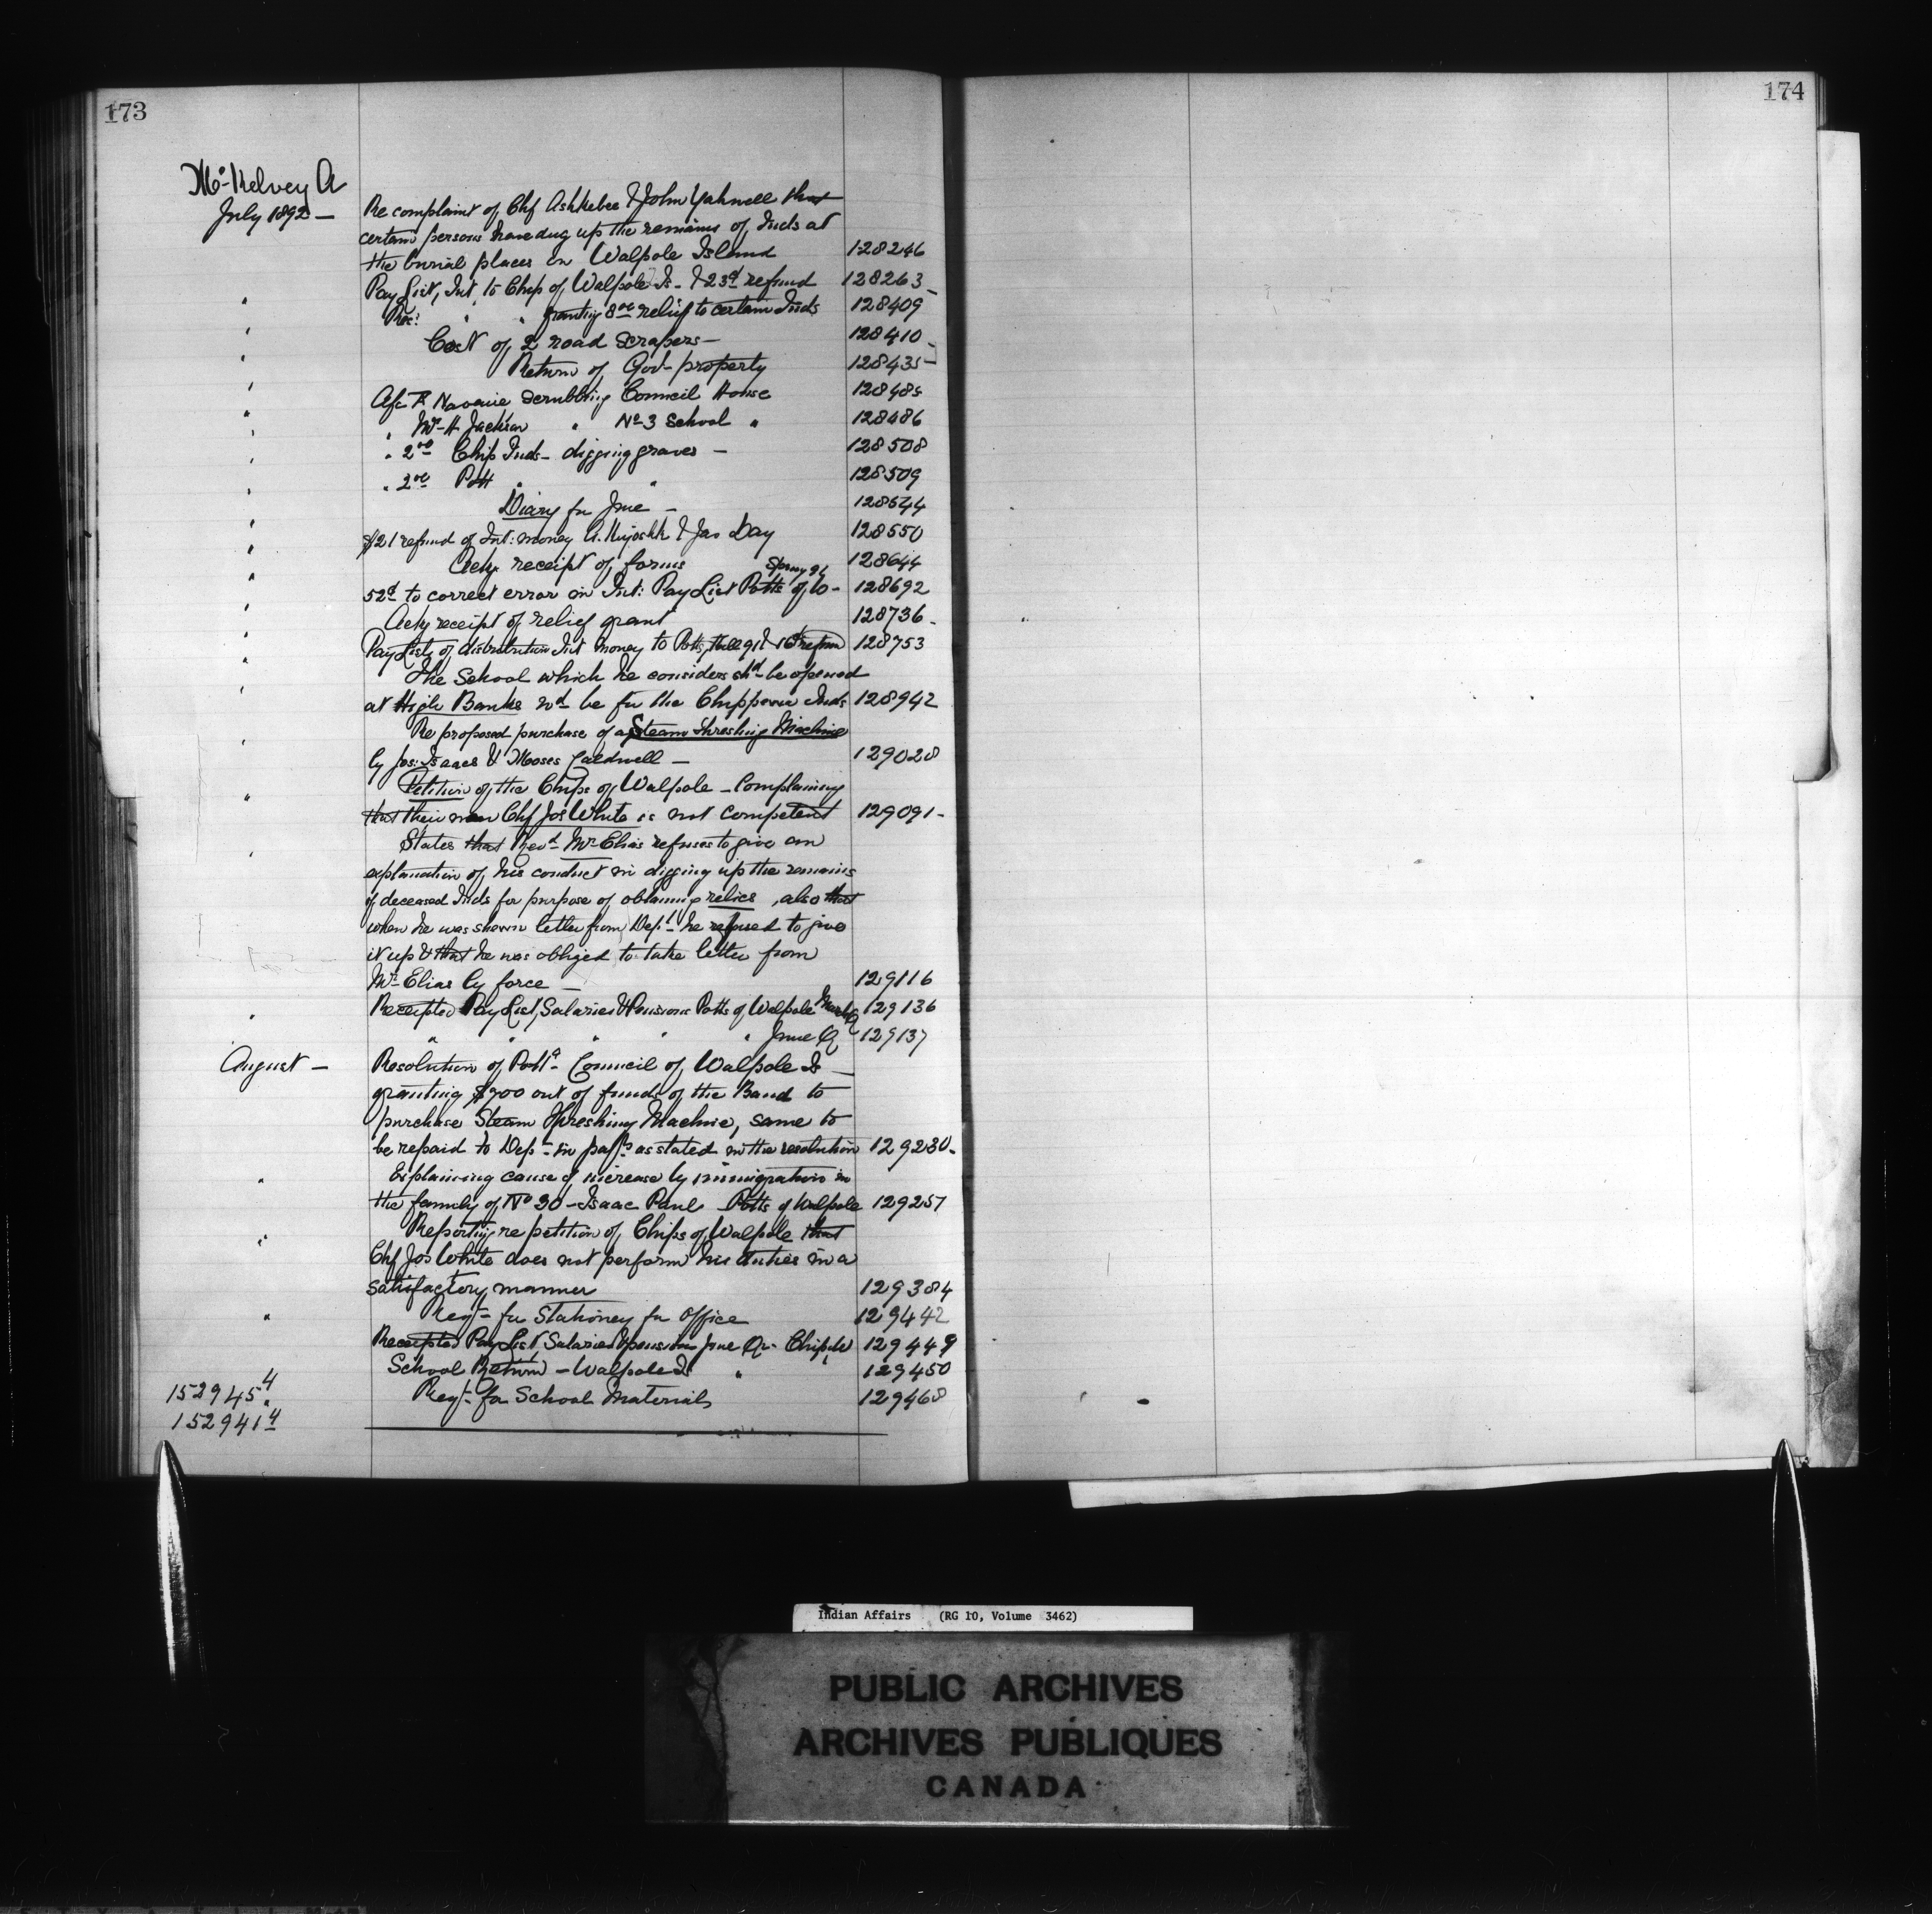 173
174
McKelvey A
July 1892 — Re complaint of Chf Ashkebee & John Yahnell that
certain persons have dug up the remains of Inds at
the burial places on Walpole Island 128246
" Pay List, Int. to Chips of Walpole Is - & 23d refund 128263
" " " granting 8.00 relief to certain Inds 128409
" Cost of 2 road scrapers — 128410
" Return of Govt property 128435
" A/c Navarie scrubbing Council House 128485
" " Mrs H Jackson " No 3 School " 128486
" " 2.00 Chip Inds - digging graves — 128508
" " 2.00 Pott " " 128509
" Diary for June — 128544
" $21 refund of Int: money A. Kiyoshk & Jas Day 128550
" Ackg receipt of forms 128644
" 52d to correct error in Int: Pay List Potts of W - Spring 92 128692
" Ackg receipt of relief grant 128736
" Pay Lists of distribution Int money to Potts, fall 91 & refund 128753
" The School which he considers shd be opened
at High Banks wd be for the Chippewa Inds 128942
" Re proposed purchase of a Steam Threshing Machine
by Jos: Isaacs & Moses Caldwell — 129028
" Petition of the Chips of Walpole - Complaining
that their new Chf Jos White is not competent 129091
" States that Revd Mr Elias refuses to give an
explanation of his conduct in digging up the remains
of deceased Inds for purpose of obtaining relics, also that
when he was shown letter from Dept he refused to give
it up & that he was obliged to take letter from
Mr Elias by force — 129116
" Receipted Pay List, Salaries & Pensions Potts of Walpole March Q 129136
" " " " June Q 129137
August — Resolution of Potta Council of Walpole Is —
granting $900 out of funds of the Band to
purchase Steam Threshing Machine, same to
be repaid to Dept in payts as stated in the resolution 129230
" Explaining cause of increase by immigration in
the family of No 30 - Isaac Paul Potts of Walpole 129257
" Reporting re petition of Chips of Walpole that
Chf Jos White does not perform his duties in a
satisfactory manner 129384
" Reqt for Stationey for Office 129442
Receipted Pay List, Salaries & pensions June Qr - Chip W 129449
School Return - Walpole Is " 129450
152945.4 Reqt for School Material 129468
152941 4
Indian Affairs (RG 10, Volume 3462)
PUBLIC ARCHIVES
ARCHIVES PUBLIQUES
CANADA